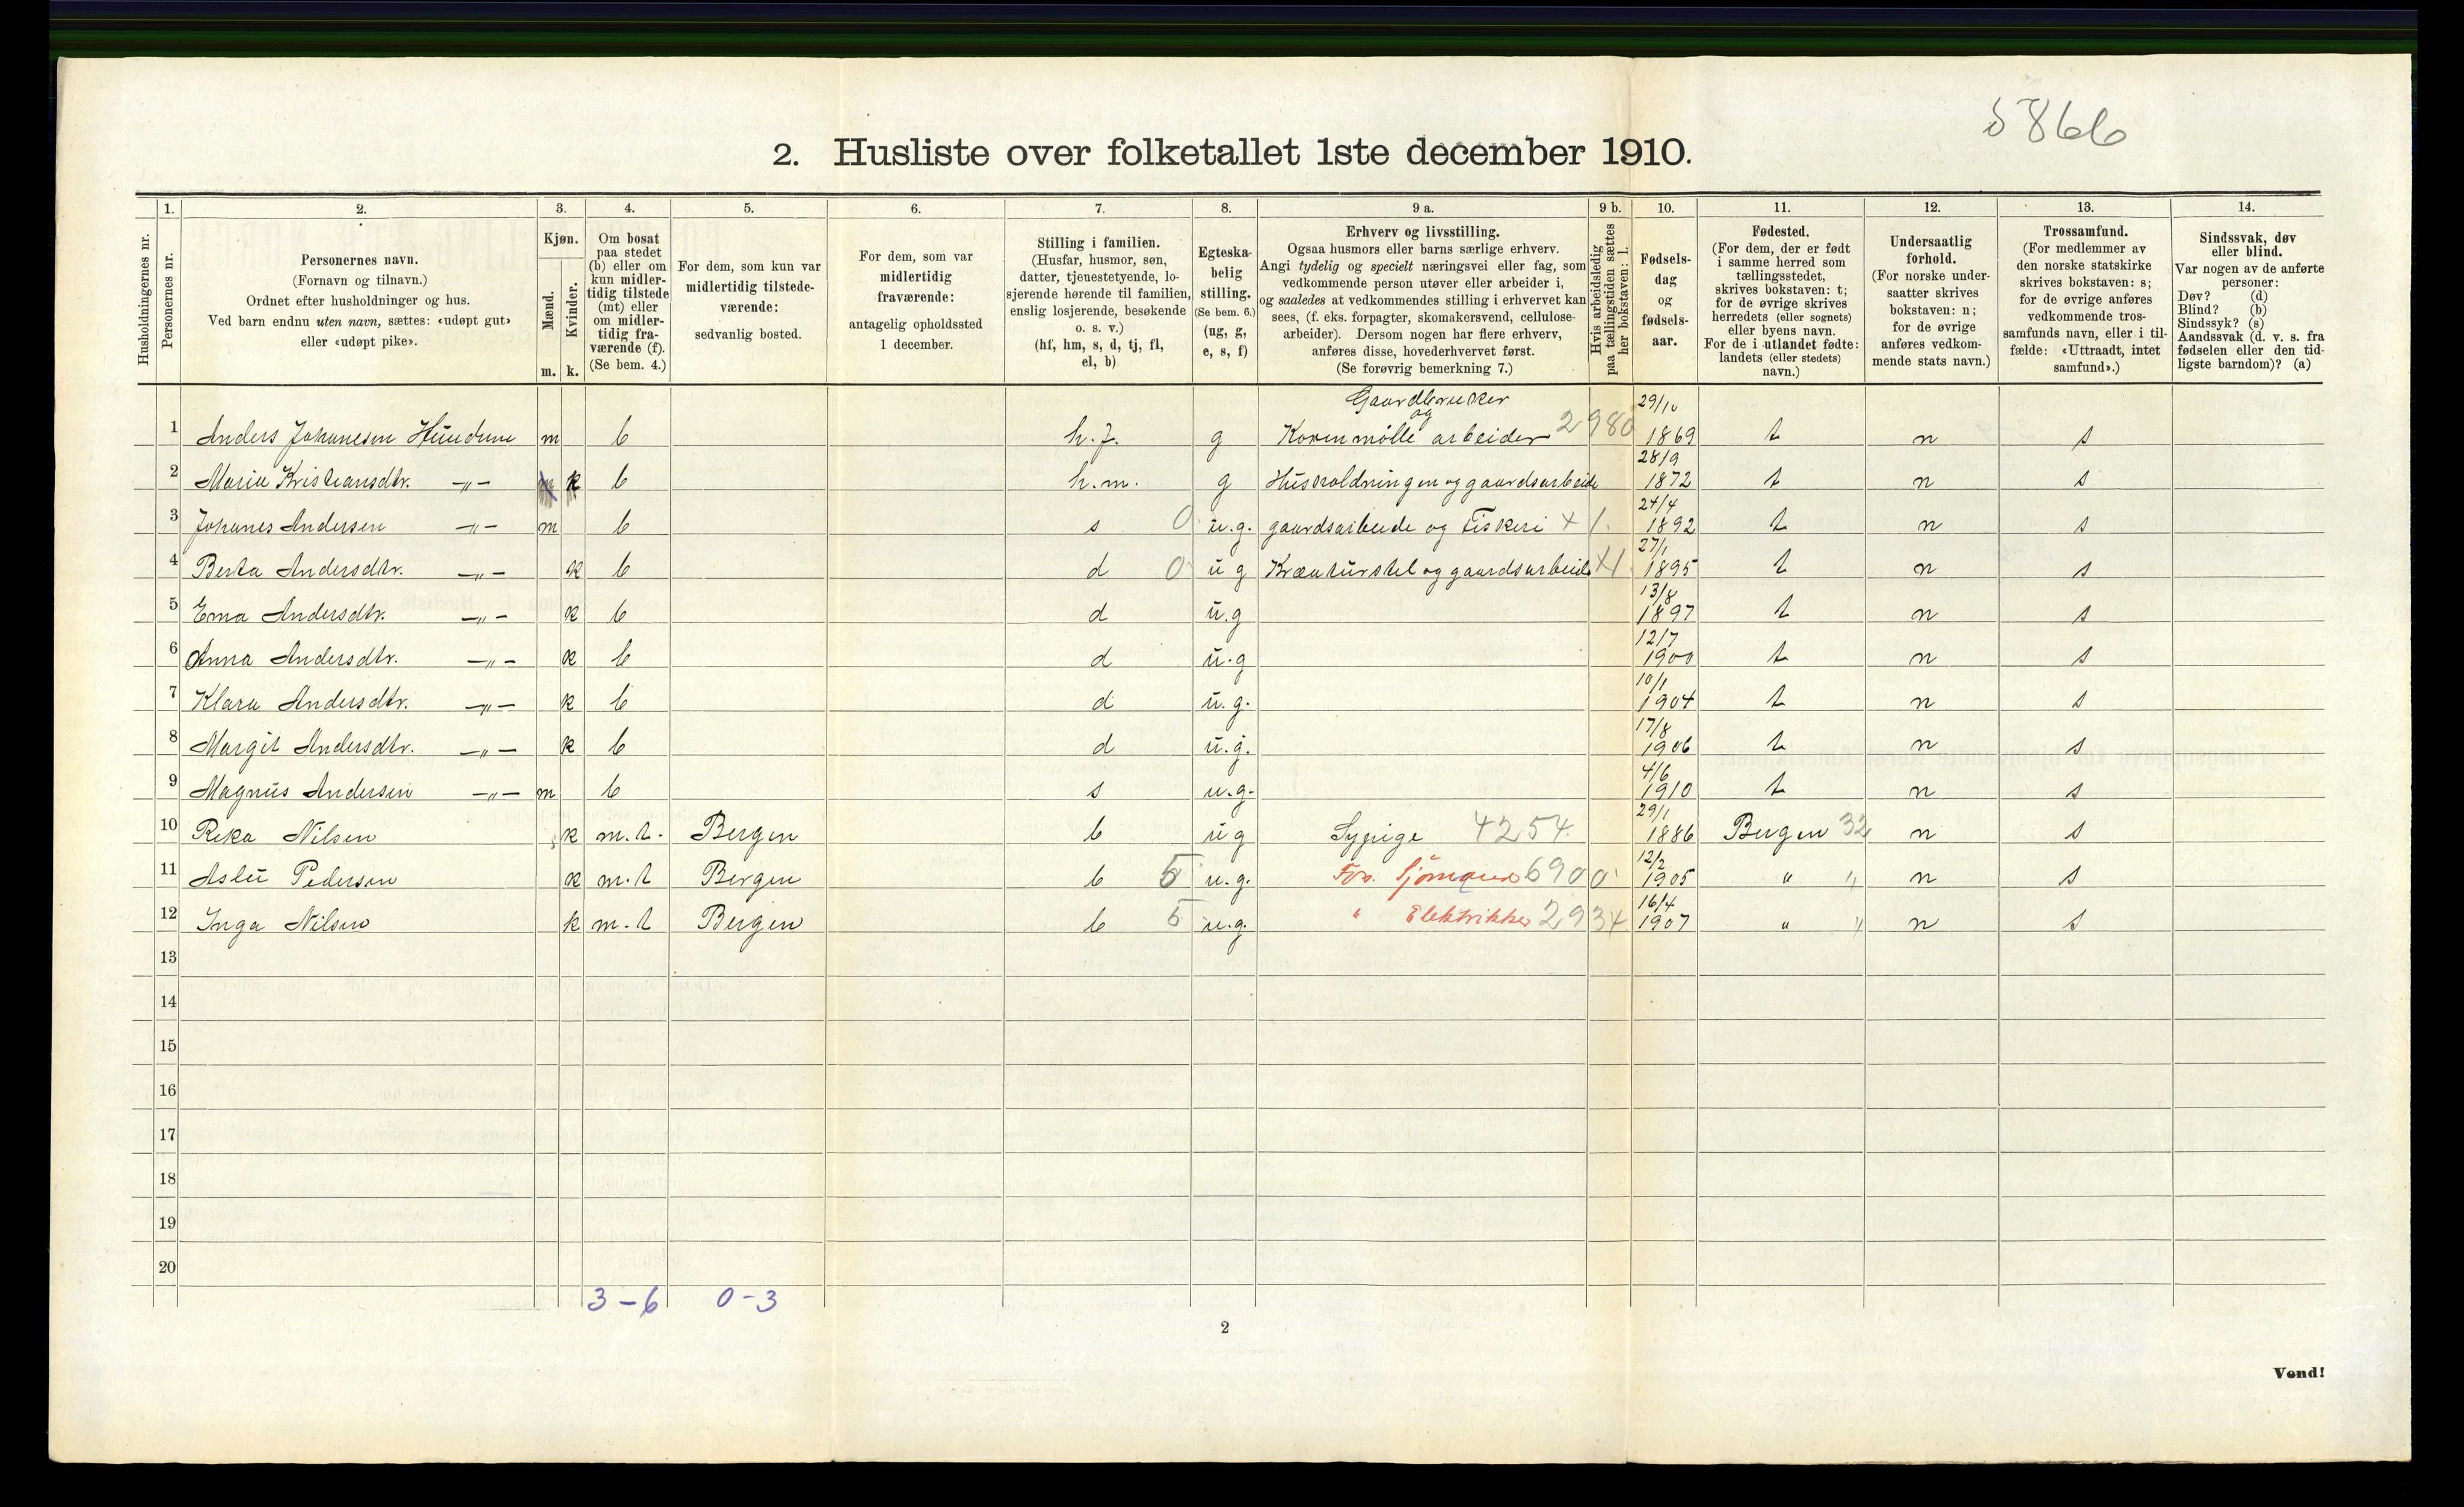 5866
2. Husliste over folketallet 1ste december 1910.
Husholdningernes nr.
1. Personernes nr.
2. Personernes navn.
(Fornavn og tilnavn.)
Ordnet efter husholdninger og hus.
Ved barn endnu uten navn, sættes: «udøpt gut»
eller «udøpt pike».
3. Kjøn.
Mænd. m.
Kvinder. k.
4. Om bosat
paa stedet
(b) eller om
kun midler-
tidig tilstede
(mt) eller
om midler-
tidig fra-
værende (f).
(Se bem. 4.)
5. For dem, som kun var
midlertidig tilstede-
værende:
sedvanlig bosted.
6. For dem, som var
midlertidig
fraværende:
antagelig opholdssted
1 december.
7. Stilling i familien.
(Husfar, husmor, søn,
datter, tjenestetyende, lo-
sjerende hørende til familien,
enslig losjerende, besøkende
o. s. v.)
(hf, hm, s, d, tj, fl,
el, b)
8. Egteska-
belig
stilling.
(Se bem. 6.)
(ug, g,
e, s, f)
9 a. Erhverv og livsstilling.
Ogsaa husmors eller barns særlige erhverv.
Angi tydelig og specielt næringsvei eller fag, som
vedkommende person utøver eller arbeider i,
og saaledes at vedkommendes stilling i erhvervet kan
sees, (f. eks. forpagter, skomakersvend, cellulose-
arbeider). Dersom nogen har flere erhverv,
anføres disse, hovederhvervet først.
(Se forøvrig bemerkning 7.)
9 b. Hvis arbeidsledig
paa tællingstiden sættes
her bokstaven: l.
10. Fødsels-
dag
og
fødsels-
aar.
11. Fødested.
(For dem, der er født
i samme herred som
tællingsstedet,
skrives bokstaven: t;
for de øvrige skrives
herredets (eller sognets)
eller byens navn.
For de i utlandet fødte:
landets (eller stedets)
navn.)
12. Undersaatlig
forhold.
(For norske under-
saatter skrives
bokstaven: n;
for de øvrige
anføres vedkom-
mende stats navn.)
13. Trossamfund.
(For medlemmer av
den norske statskirke
skrives bokstaven: s;
for de øvrige anføres
vedkommende tros-
samfunds navn, eller i til-
fælde: «Uttraadt, intet
samfund».)
14. Sindssvak, døv
eller blind.
Var nogen av de anførte
personer:
Døv? (d)
Blind? (b)
Sindssyk? (s)
Aandssvak (d. v. s. fra
fødselen eller den tid-
ligste barndom)? (a)
Gaardbruker og 29/10
1 Anders Johanesen m b h.f. g Korenmølle arbeider 2980 1869 t n s
28/9
2 Maria Kristiansdtr. -"- k b h.m. g Husholdningen og gaardsarbeide 1872 t n s
24/4
3 Johanes Andersen -"- m b s 0 u.g. gaardsarbeide og Fiskeri x l. 1892 t n s
27/1
4 Berta Andersdtr. -"- k b d 0 u g Kræaturstel og gaardsarbeide xl 1895 t n s
13/8
5 Ema Andersdtr. -"- k b d u.g 1897 t n s
12/7
6 Anna Andersdtr. -"- k b d u.g 1900 t n s
10/1
7 Klara Andersdtr. -"- k b d u.g. 1904 t n s
17/8
8 Margit Andersdtr. -"- k b d u.g. 1906 t n s
4/6
9 Magnus Andersen -"- m b s u.g. 1910 t n s
29/1
10 Rika Nilsen k m.t. Bergen b u g Sypige 4254. 1886 Bergen 32 n s
12/2
11 Pedersen k m.t Bergen b 5 u.g. For. Sjömand 6900 1905 " " n s
16/4
12 Inga Nilsen k m.t Bergen b 5 u.g. " Elektrikker 2934 1907 " " n s
13
14
15
16
17
18
19
20
3-6 0-3
2
Vend!